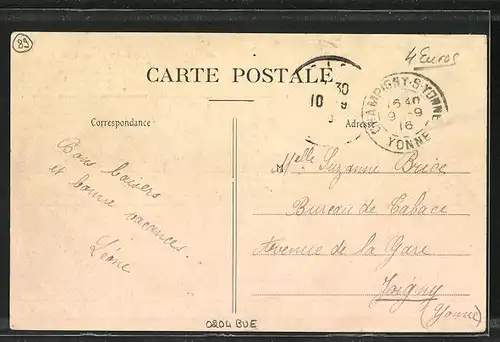 89
4 Euros
CARTE POSTALE
30
10 9
CHAMPIGNY-S-YONNE
16 40
9 -9
16
YONNE
Correspondance
Adresse
Bons baisers
et bonne vacances.
Léone
Melle Suzanne Brice
Bureau de Tabace
Avenue de la Gare
Joigny
(Yonne)
0204 BUE